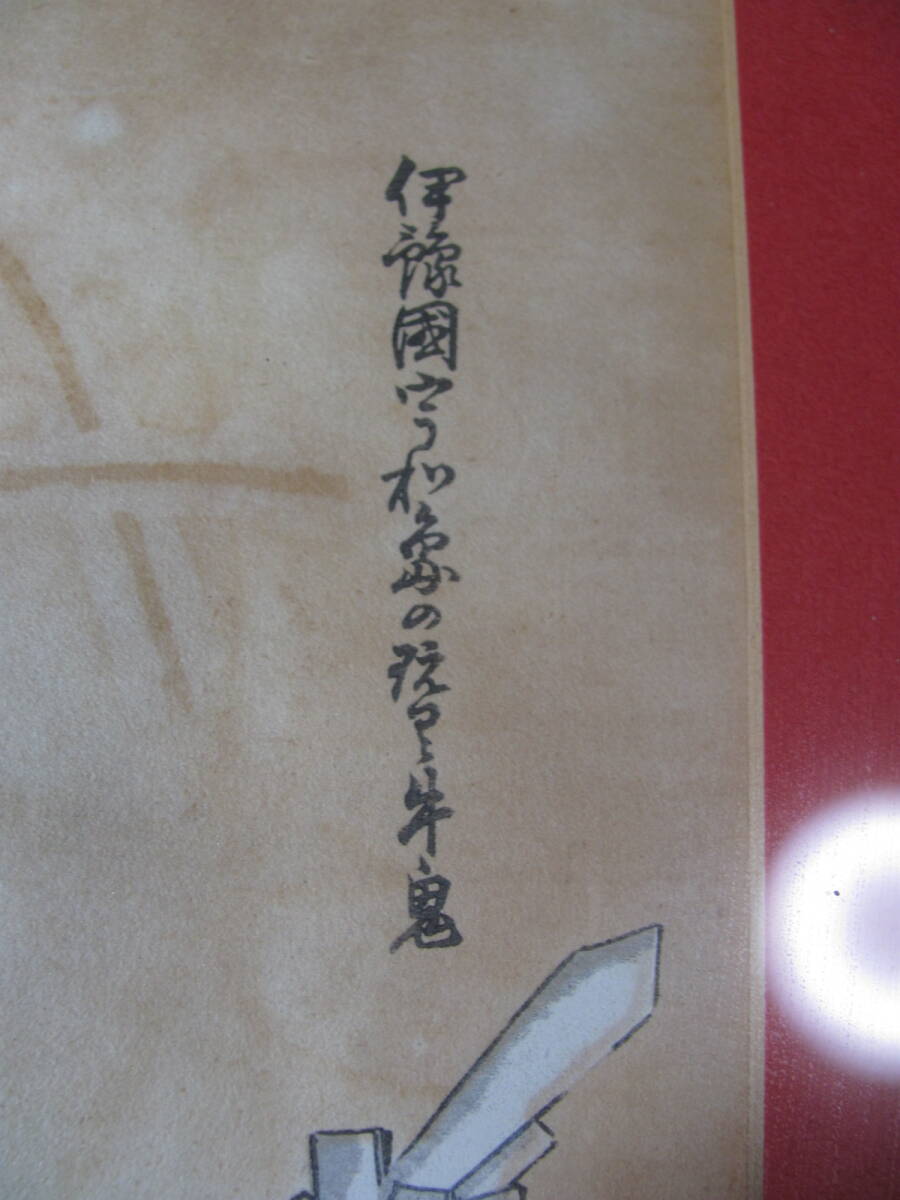 伊豫國宇和島の玩具牛鬼